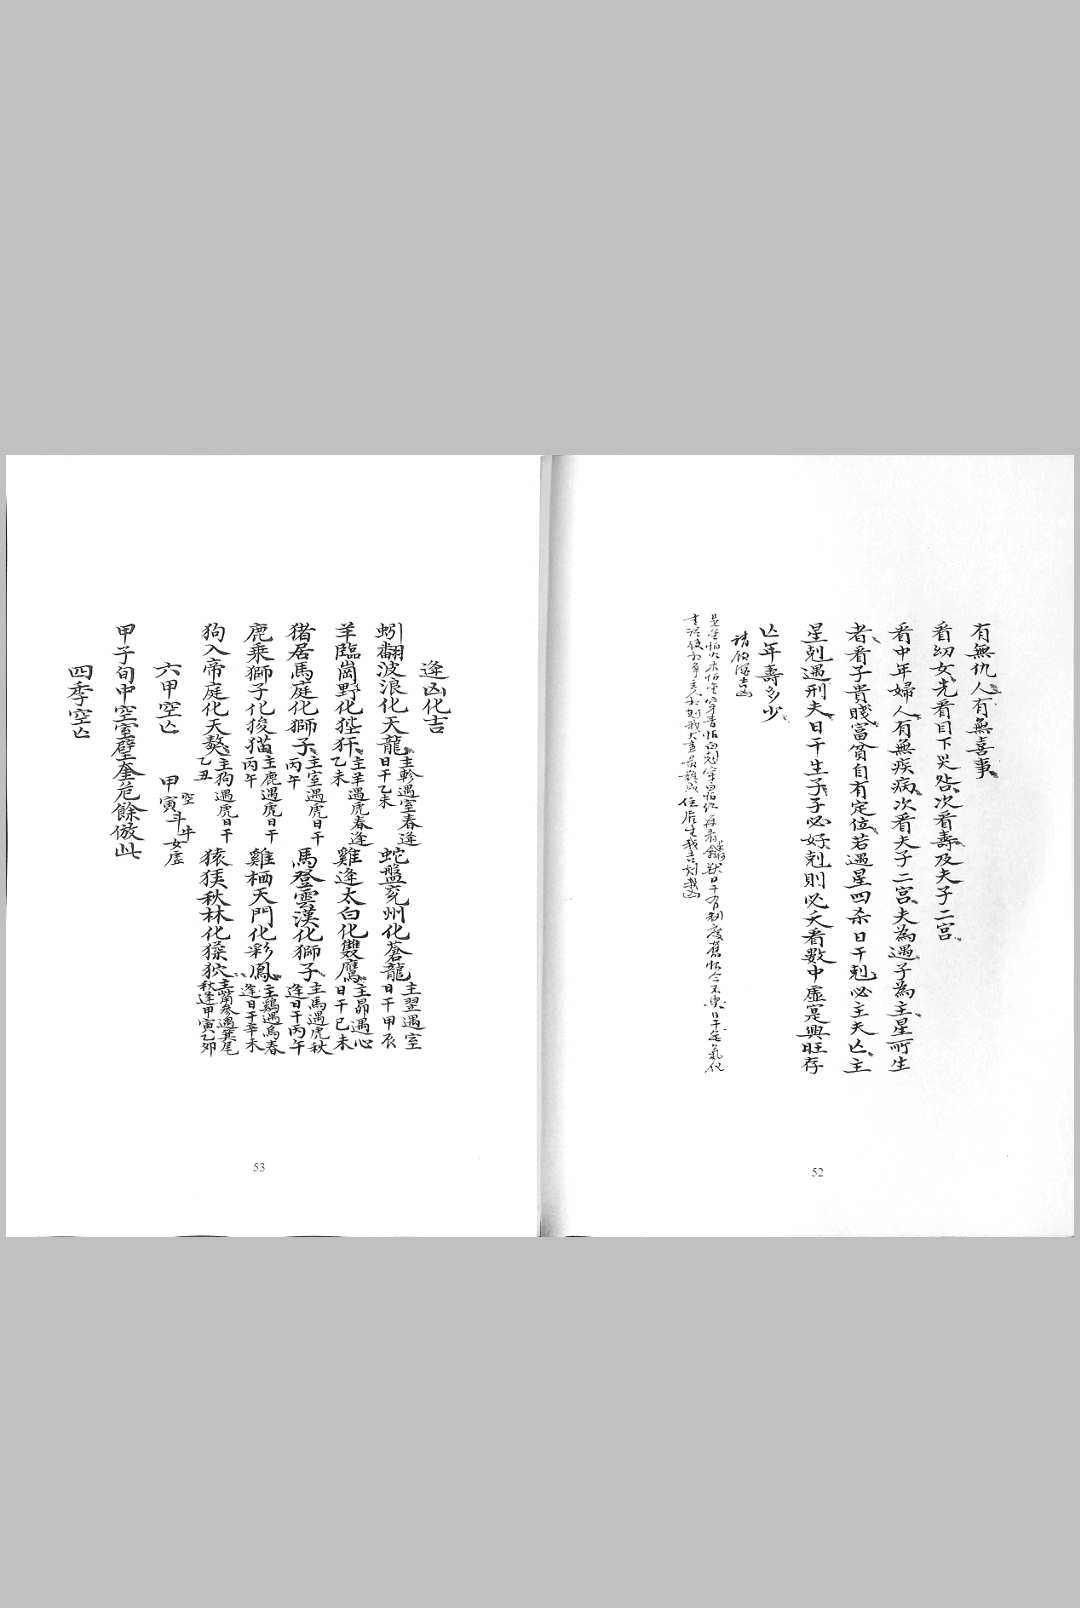 有無仇人有無喜事
看幼女先看目下災咎次看壽及夫子二宮
看中年婦人有無疾病次看夫子二宮夫為遇子為主星所生
者看子貴賤富貧自有定位若遇星四杀日干剋必主夫亾主
星剋遇刑夫日干生子子必好剋則必夭看數中虛寔興旺存
亾年壽多少
52
逢凶化吉
蚓翻波浪化天龍 主軫遇室春逢日干乙未 蛇盤兗州化蒼龍 主翌遇室日干甲辰
羊臨崗野化狴犴 主羊遇虎春逢乙未 雞逢太白化雙鷹 主昴遇心日干已未
猪居馬庭化獅子 主室遇虎日干丙午 馬登雲漢化獅子 主馬遇虎秋逢日干丙午
鹿乘獅子化狻猫 主鹿遇虎日干丙午 雞栖天門化彩鳳 主鷄遇烏春逢日干辛未
狗入帝庭化天獒 主狗遇虎日干乙丑 猿猨秋林化猱狖 主觜参遇箕尾秋逢甲寅乙卯
六甲空亾 甲寅空斗牛女虛
甲子旬中空室壁奎危餘倣此
四季空亾
53